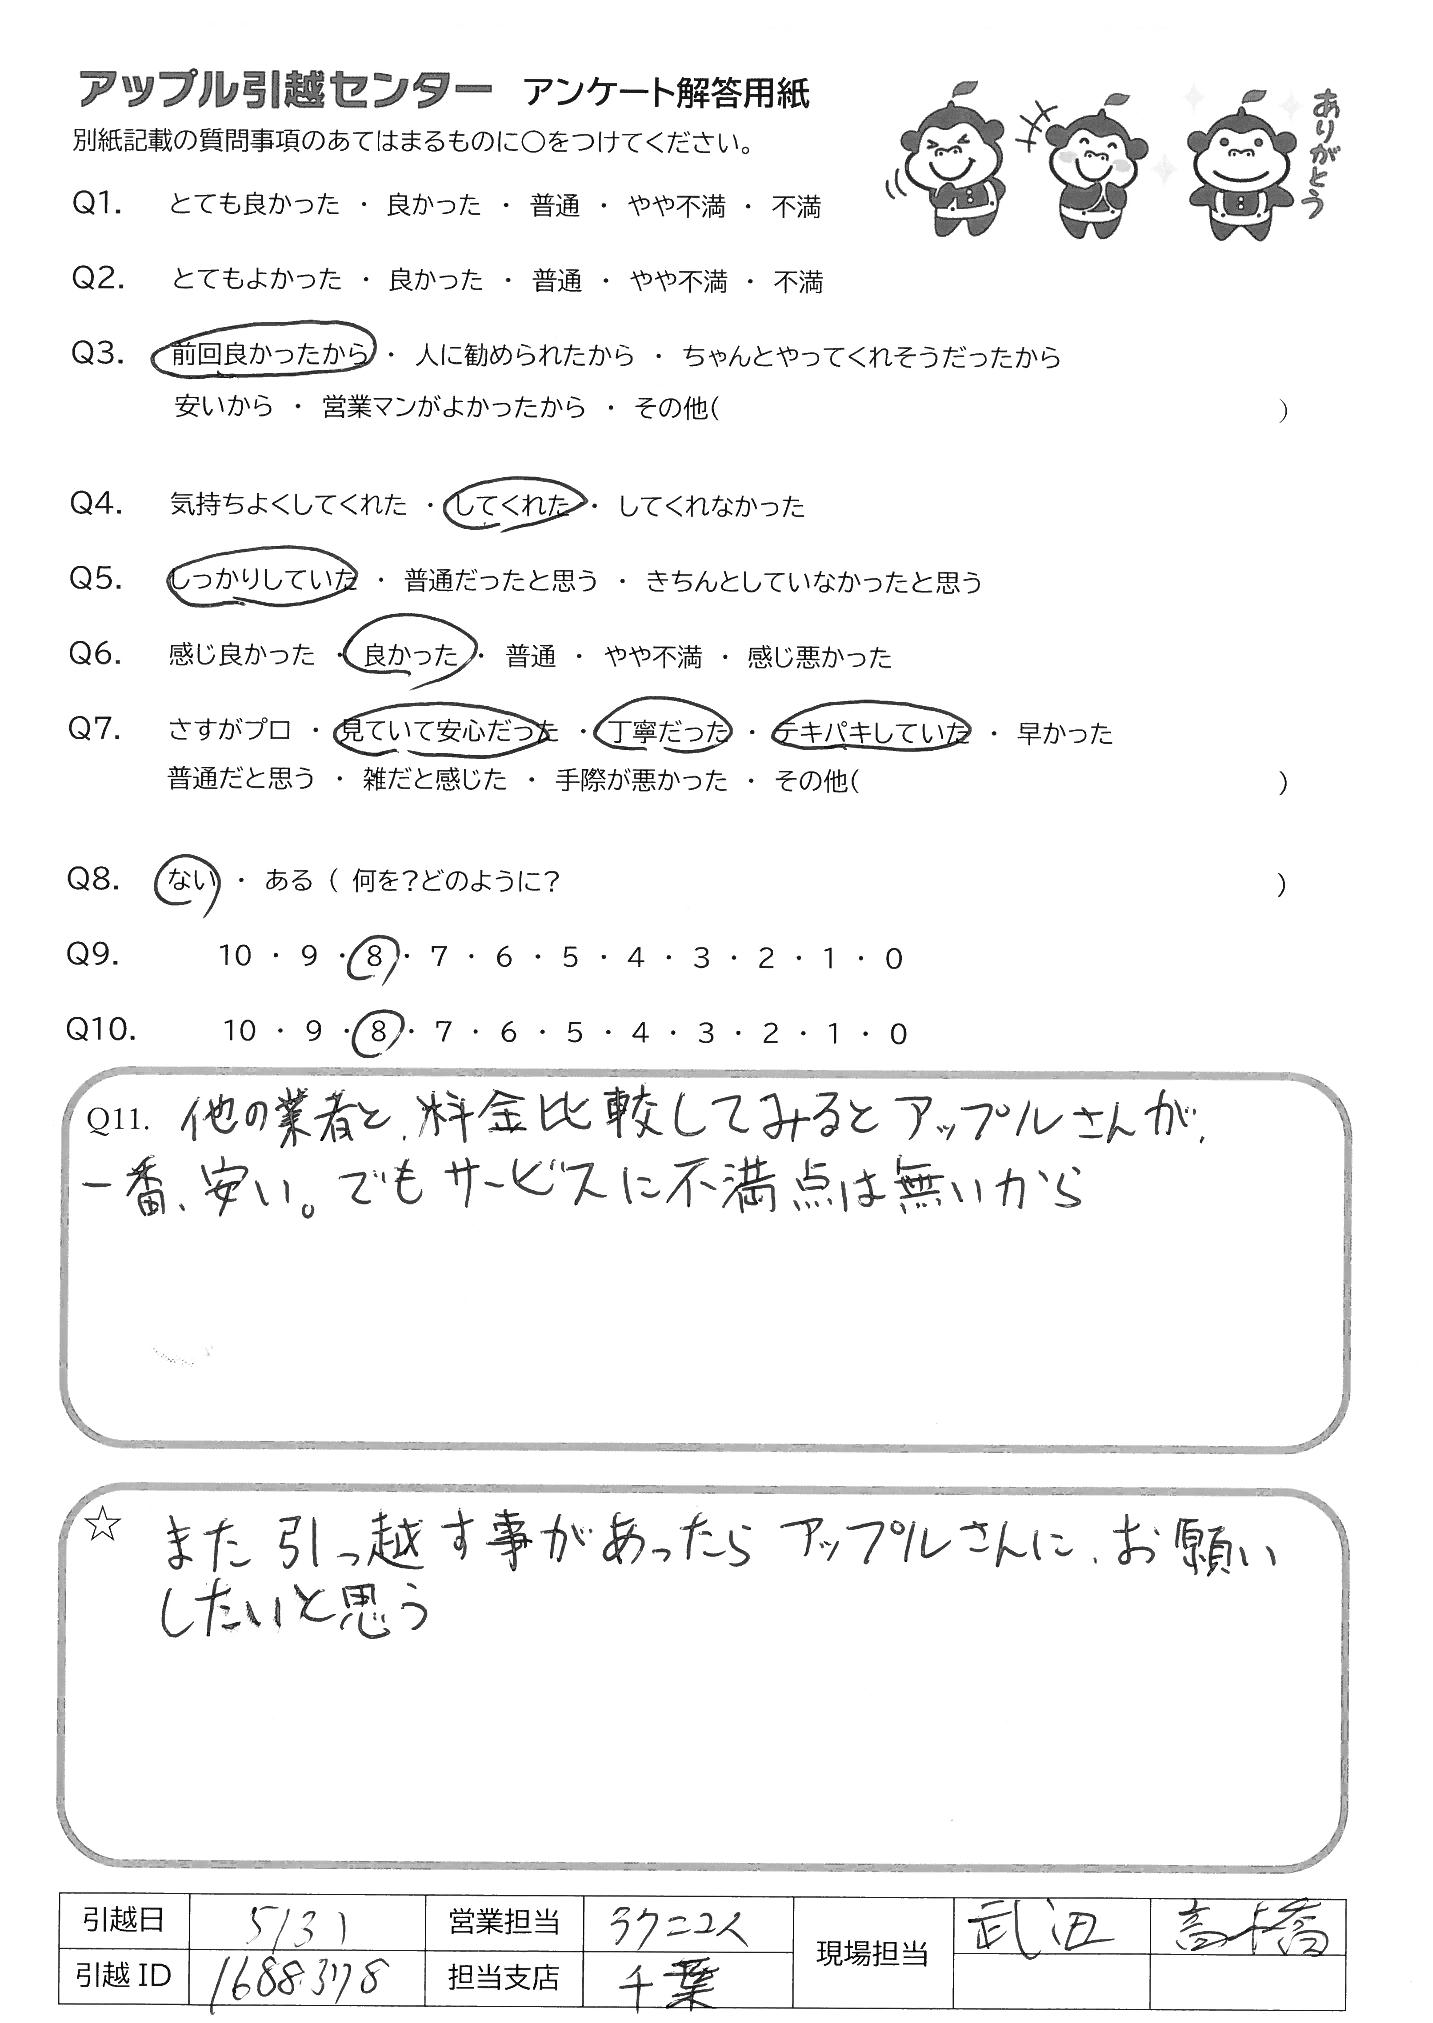 アップル引越センター アンケート解答用紙
別紙記載の質問事項のあてはまるものに〇をつけてください。
ありがとう
Q1. とても良かった ・ 良かった ・ 普通 ・ やや不満 ・ 不満
Q2. とてもよかった ・ 良かった ・ 普通 ・ やや不満 ・ 不満
Q3. 前回良かったから ・ 人に勧められたから ・ ちゃんとやってくれそうだったから
安いから ・ 営業マンがよかったから ・ その他( )
Q4. 気持ちよくしてくれた ・ してくれた ・ してくれなかった
Q5. しっかりしていた ・ 普通だったと思う ・ きちんとしていなかったと思う
Q6. 感じ良かった ・ 良かった ・ 普通 ・ やや不満 ・ 感じ悪かった
Q7. さすがプロ ・ 見ていて安心だった ・ 丁寧だった ・ テキパキしていた ・ 早かった
普通だと思う ・ 雑だと感じた ・ 手際が悪かった ・ その他( )
Q8. ない ・ ある ( 何を?どのように? )
Q9. 10 ・ 9 ・ 8 ・ 7 ・ 6 ・ 5 ・ 4 ・ 3 ・ 2 ・ 1 ・ 0
Q10. 10 ・ 9 ・ 8 ・ 7 ・ 6 ・ 5 ・ 4 ・ 3 ・ 2 ・ 1 ・ 0
Q11. 他の業者と、料金比較してみるとアップルさんが、
一番、安い。でもサービスに不満点は無いから
☆ また引っ越す事があったらアップルさんに、お願い
したいと思う
引越日 5/31 営業担当 ラクニコス 現場担当 武田 高橋
引越ID 1688378 担当支店 千葉